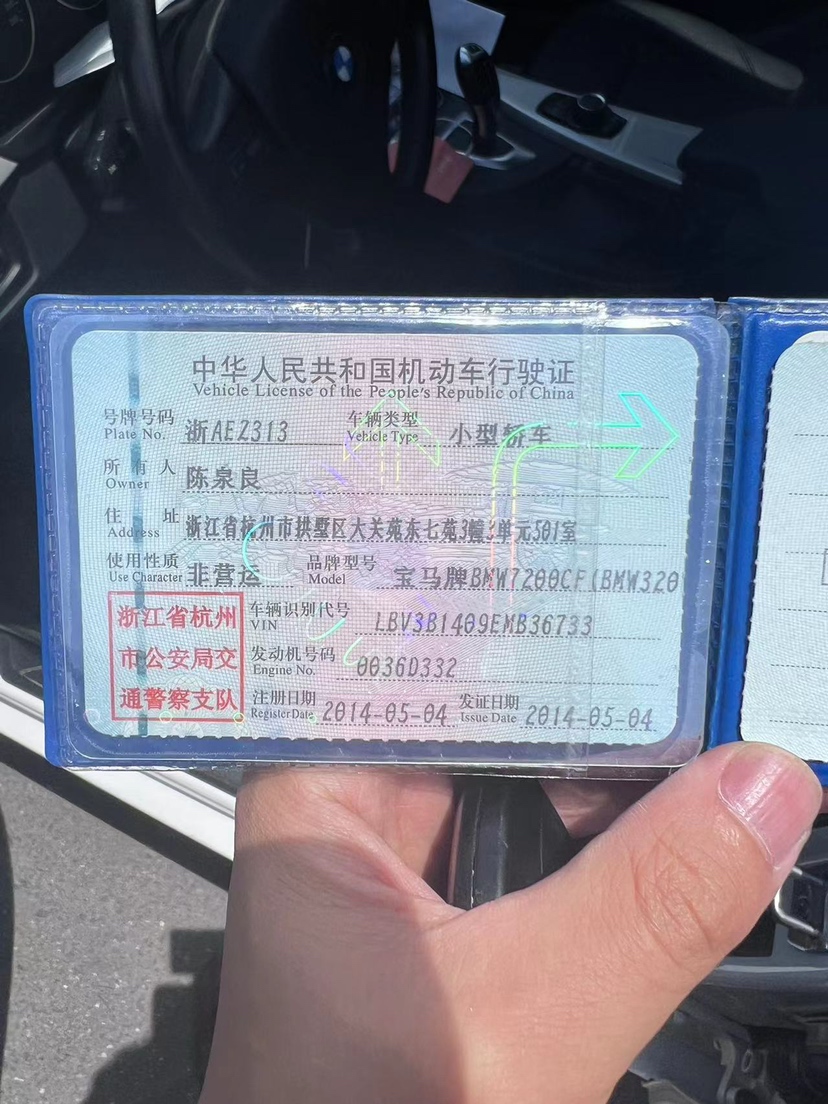 中华人民共和国机动车行驶证
Vehicle License of the People's Republic of China
号牌号码 浙AEZ313 车辆类型 小型轿车
Plate No. Vehicle Type
所有人 陈泉良
Owner
住址 浙江省杭州市拱墅区大关苑东七苑3幢3单元501室
Address
使用性质 非营运 品牌型号 宝马牌BMW7200CF(BMW320
Use Character Model
浙江省杭州
市公安局交
通警察支队
车辆识别代号 LBV3B1409EMB36733
VIN
发动机号码 0036D332
Engine No.
注册日期 2014-05-04 发证日期 2014-05-04
Register Date Issue Date